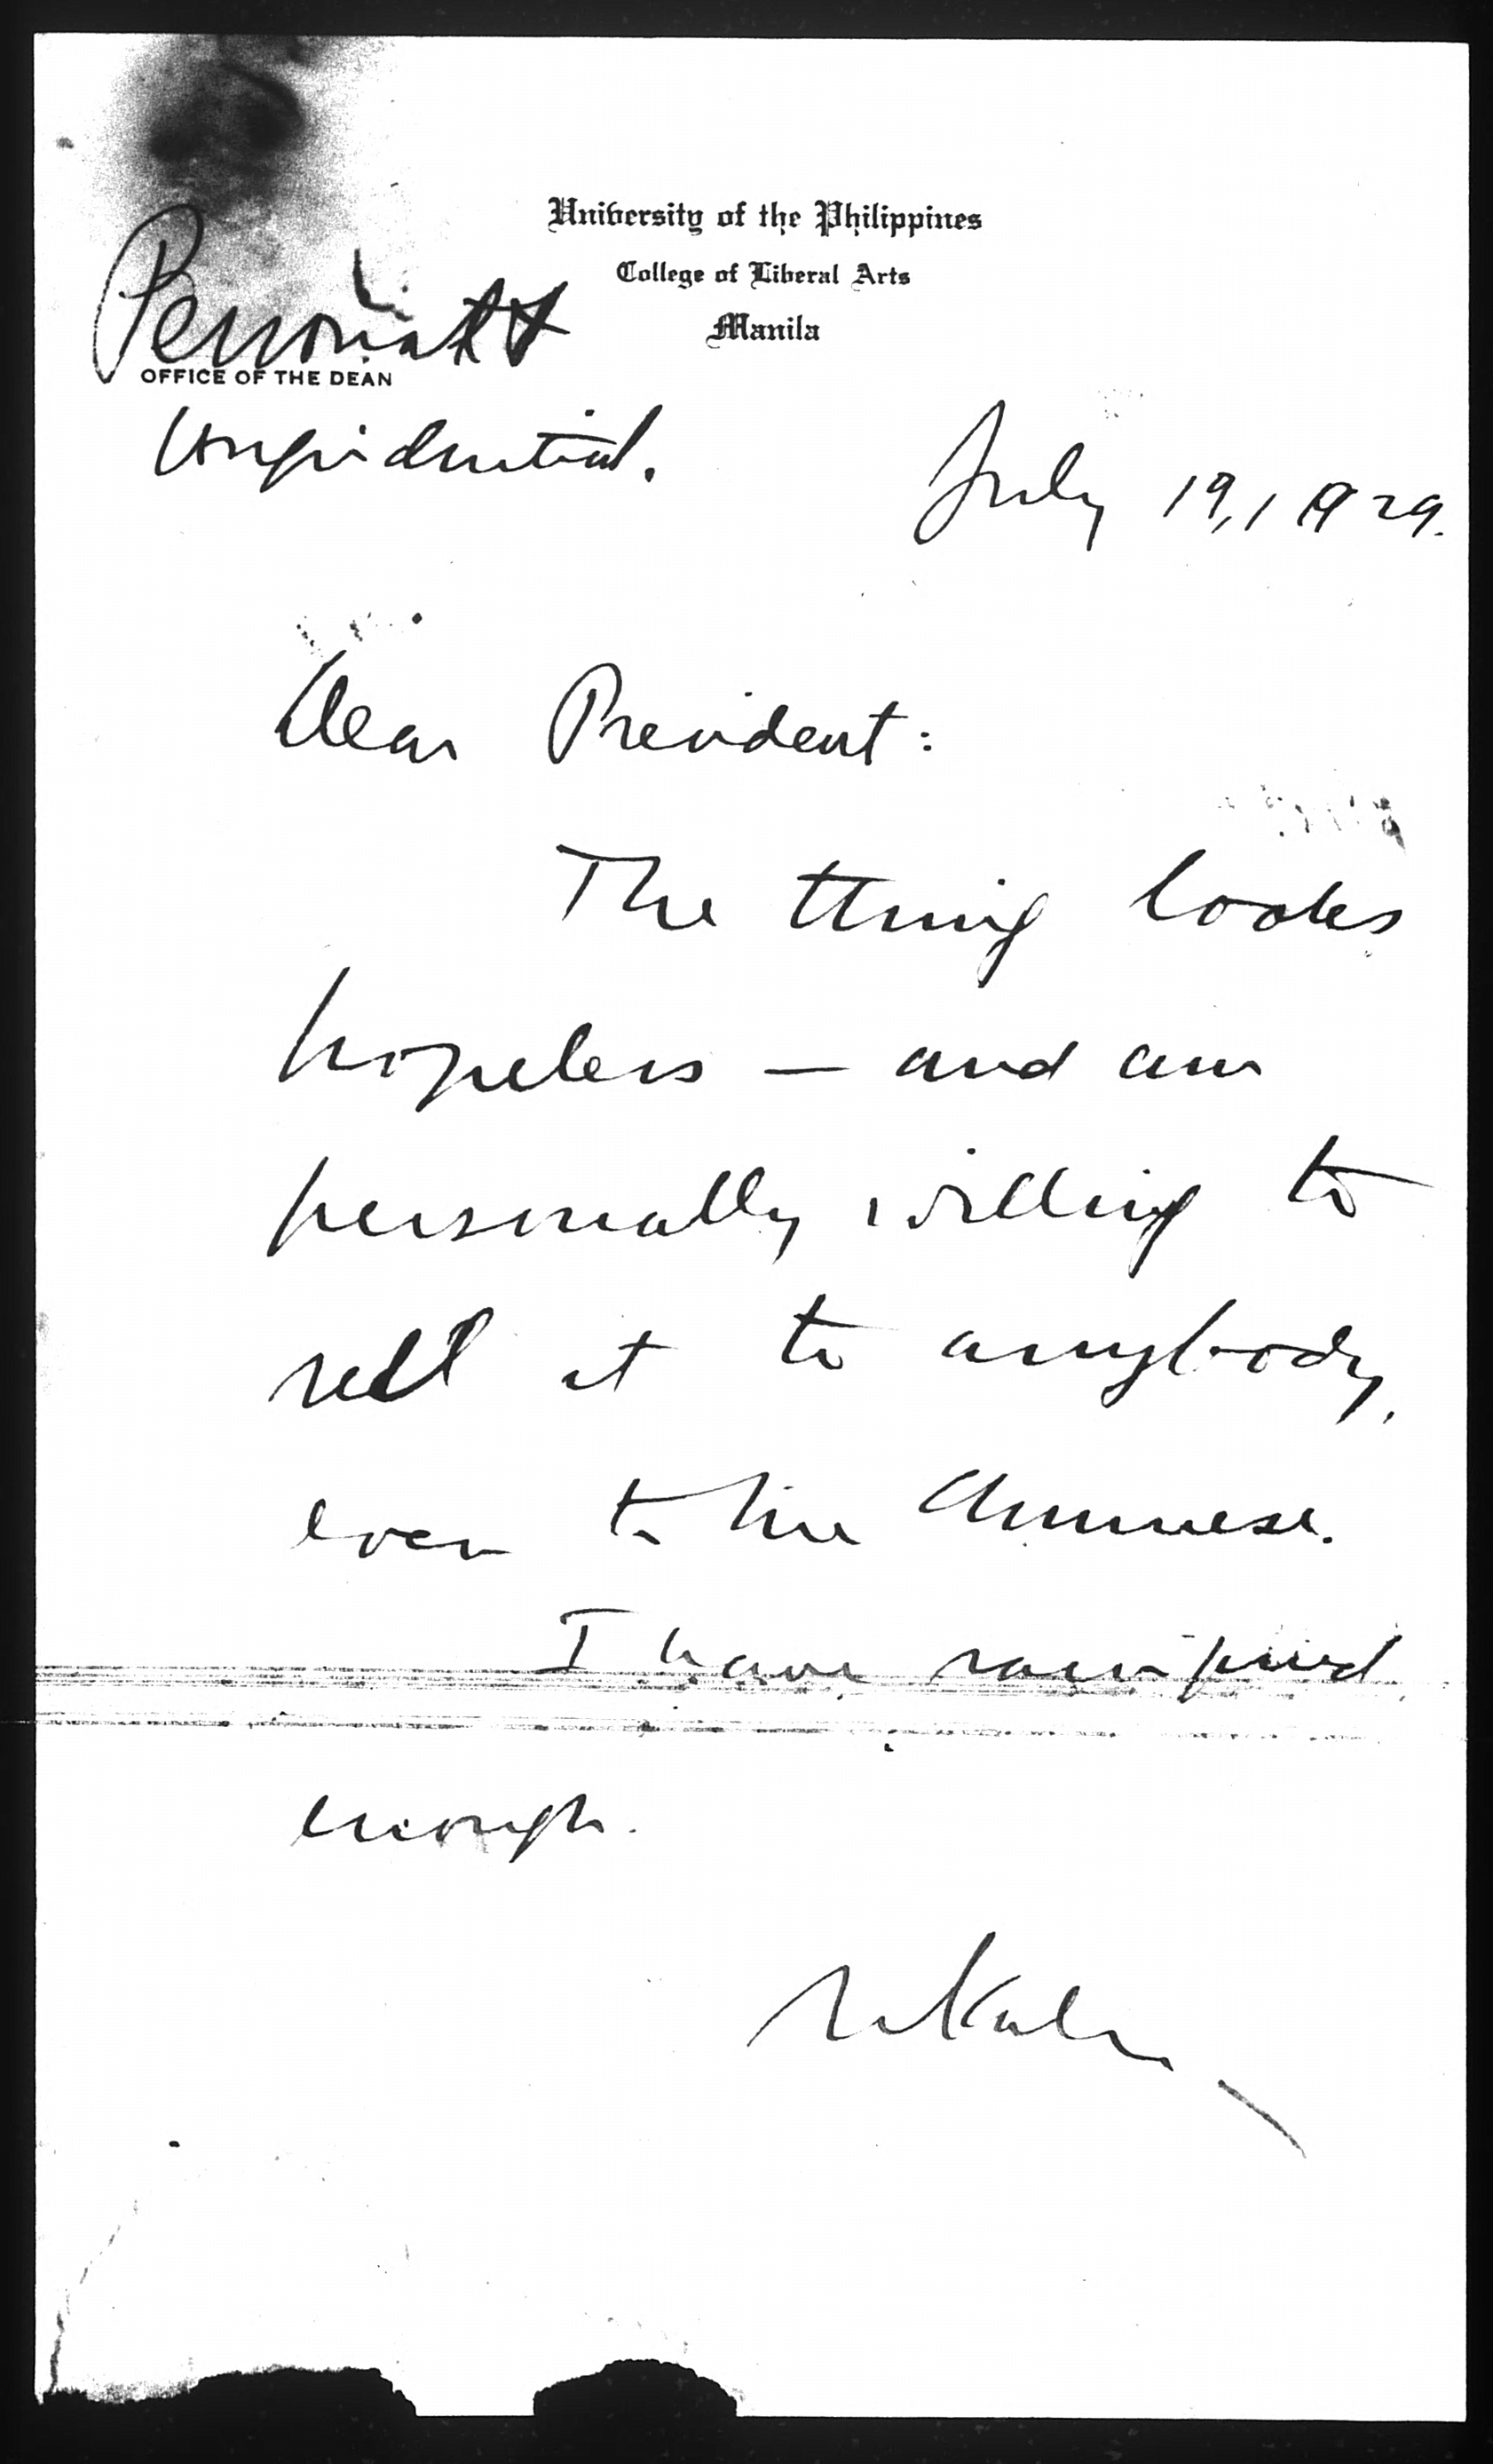 University of the Philippines
College of Liberal Arts
Manila
Personal &
OFFICE OF THE DEAN
Confidential.
July 19, 1929.
Dear President:
The thing looks
hopeless — and am
personally willing to
sell it to anybody,
even to the Chinese.
I have sacrificed
enough.